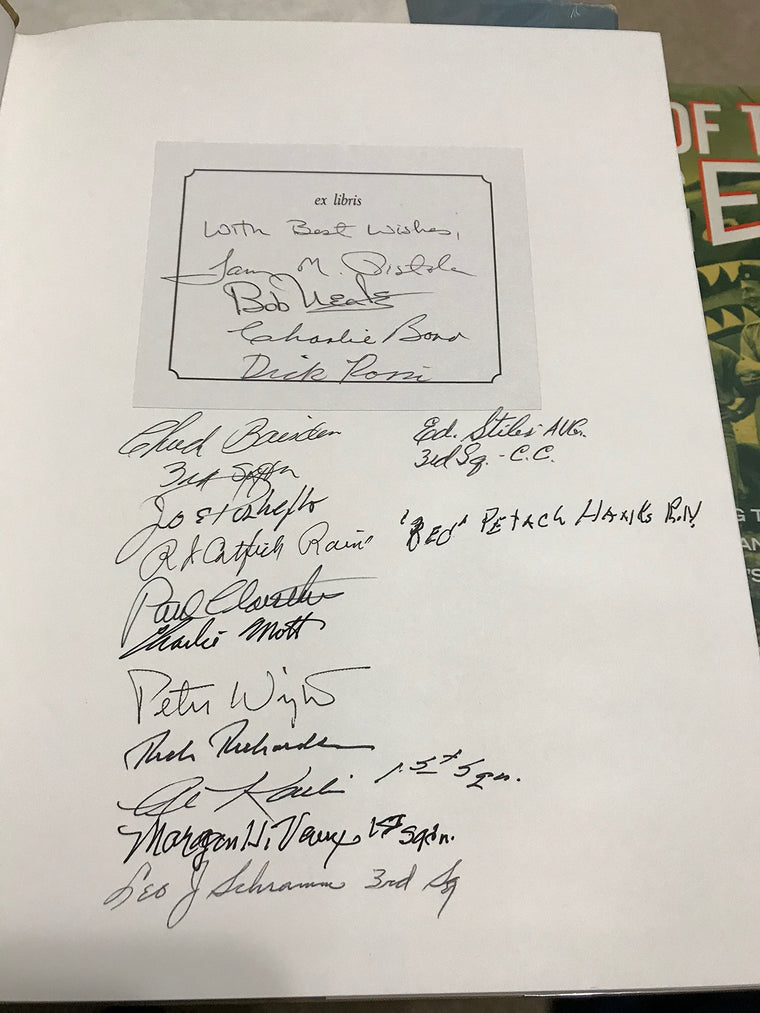 ex libris
With Best Wishes,
Larry M. Pistole
Bob Neale
Charlie Bond
Dick Rossi
Chuck Baisden
3rd Sqdn
Joe Poshefko
R J Catfish Raine
Paul
Charlie Mott
Peter Wright
Rick Richardson
1st Sqn.
Morgan H. Vaux 1st Sqdn.
Leo J Schramm 3rd Sq
Ed. Stiles AVG.
3rd Sq. - C.C.
"RED" PETACH HANKS R.N
OF T
E